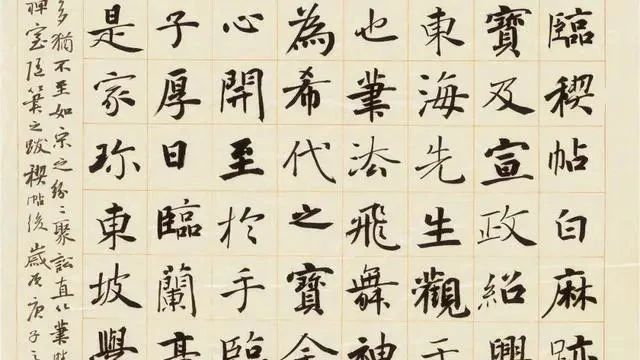 臨稧帖白麻跡
寶及宣政紹興
東海先生觀
也筆法飛舞神
為希代之寶
心開至於手臨
子厚日臨蘭亭
是家珎東坡學
多猶不至如宋之紛々聚訟直以
禪室隨筆之跋稧帖後歲次庚子